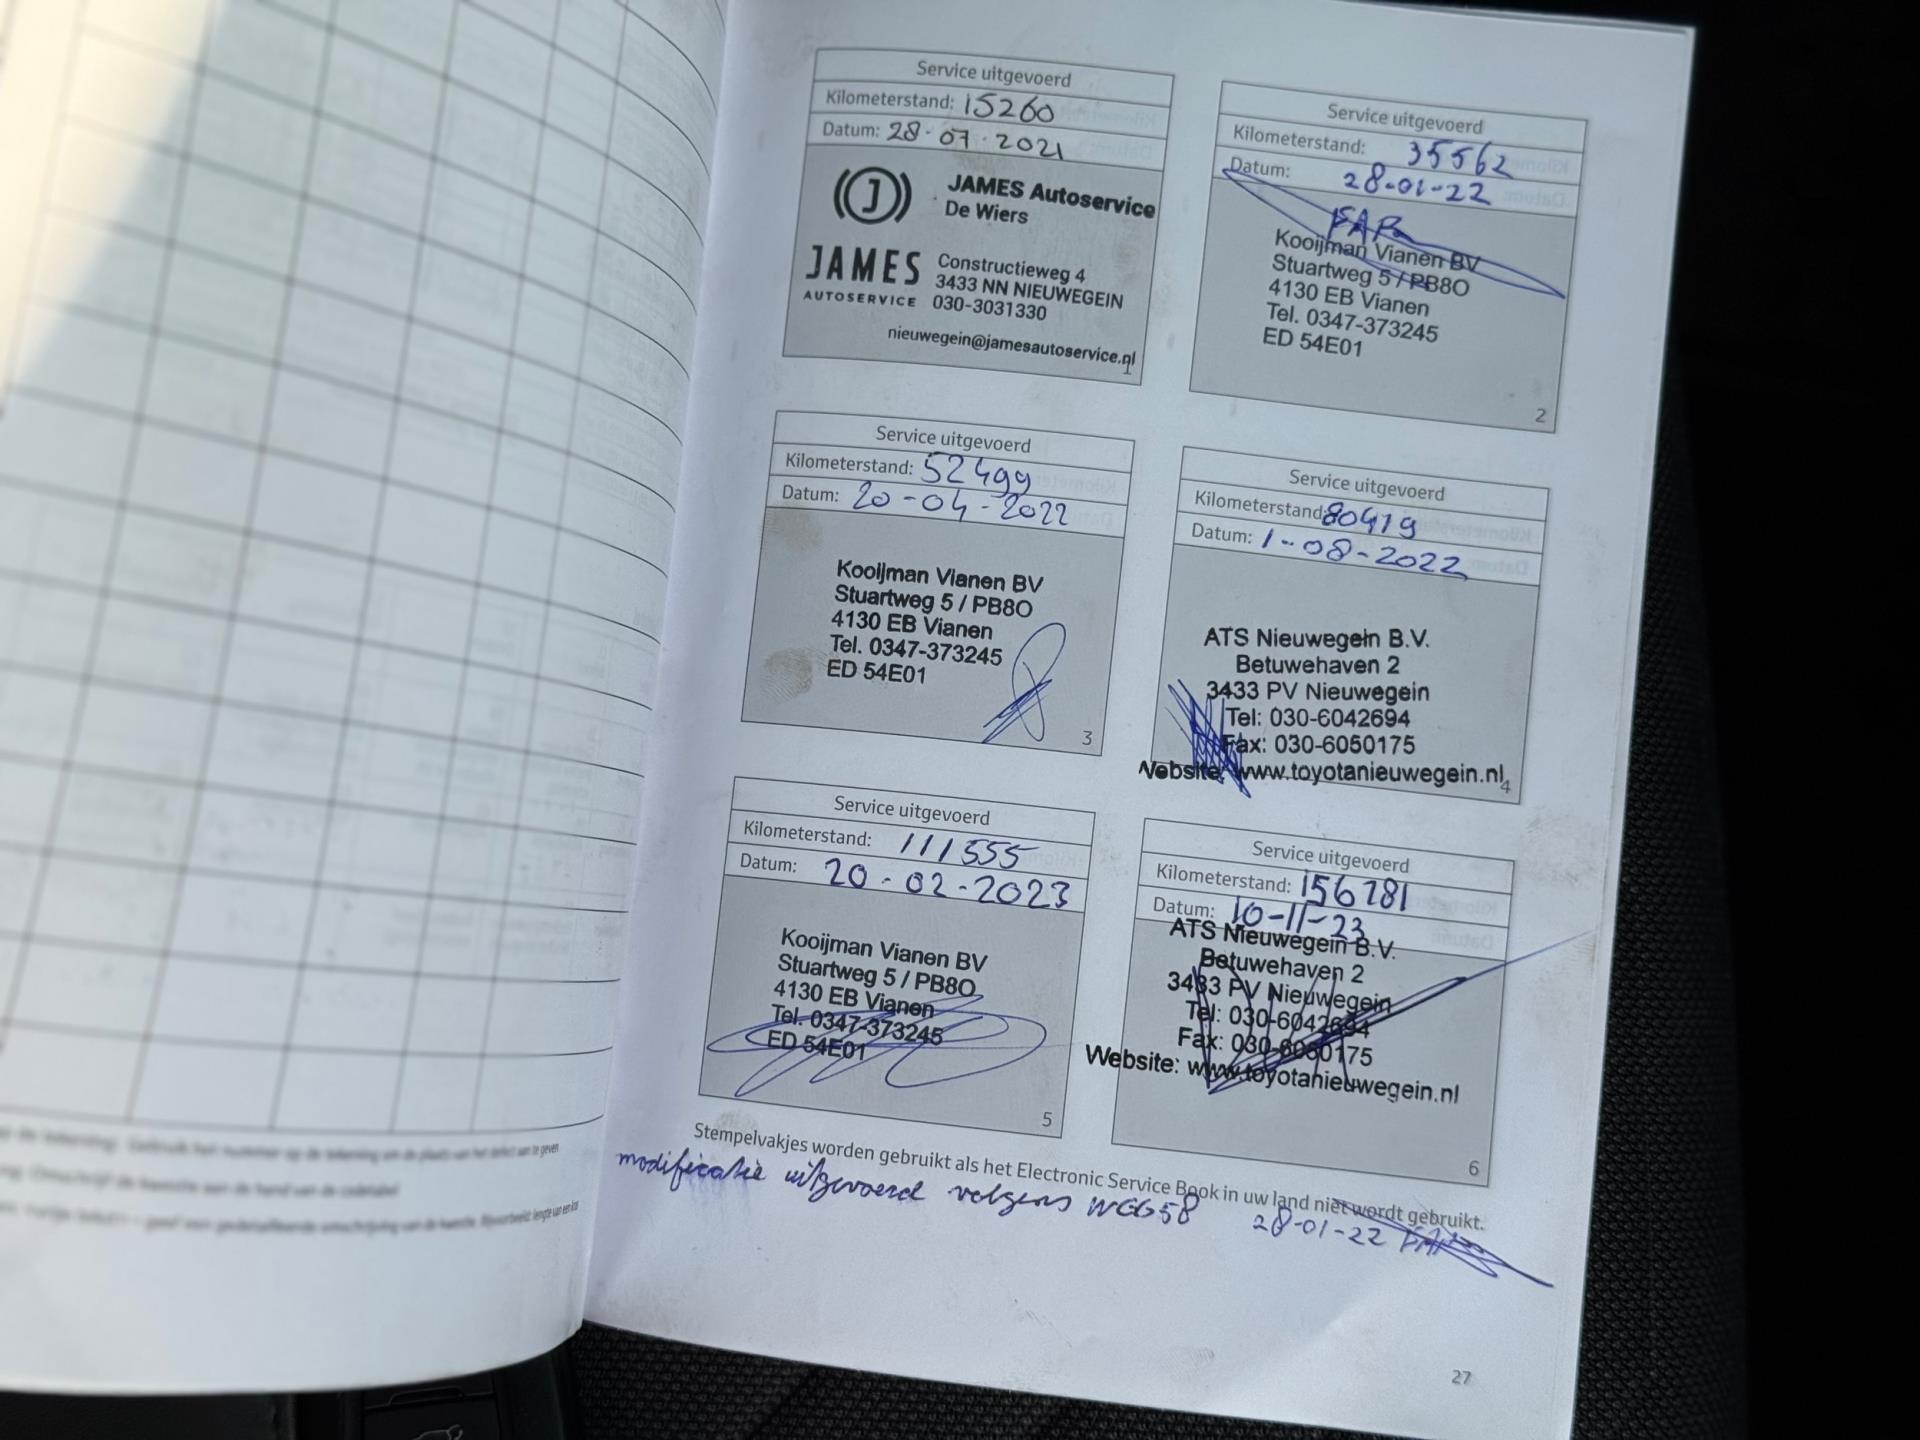 Service uitgevoerd
Kilometerstand: 15260
Datum: 28-07-2021
JAMES Autoservice
De Wiers
JAMES
AUTOSERVICE
Constructieweg 4
3433 NN NIEUWEGEIN
030-3031330
nieuwegein@jamesautoservice.nl
1
Service uitgevoerd
Kilometerstand: 35562
Datum: 28-01-22
Kooijman Vianen BV
Stuartweg 5 / PB8O
4130 EB Vianen
Tel. 0347-373245
ED 54E01
2
Service uitgevoerd
Kilometerstand: 52499
Datum: 20-04-2022
Kooijman Vianen BV
Stuartweg 5 / PB8O
4130 EB Vianen
Tel. 0347-373245
ED 54E01
3
Service uitgevoerd
Kilometerstand: 80419
Datum: 1-08-2022
ATS Nieuwegein B.V.
Betuwehaven 2
3433 PV Nieuwegein
Tel: 030-6042694
Fax: 030-6050175
Website: www.toyotanieuwegein.nl
4
Service uitgevoerd
Kilometerstand: 111555
Datum: 20-02-2023
Kooijman Vianen BV
Stuartweg 5 / PB8O
4130 EB Vianen
Tel. 0347-373245
ED 54E01
5
Service uitgevoerd
Kilometerstand: 156281
Datum: 10-11-23
ATS Nieuwegein B.V.
Betuwehaven 2
3433 PV Nieuwegein
Tel: 030-6042694
Fax: 030-6050175
Website: www.toyotanieuwegein.nl
6
Stempelvakjes worden gebruikt als het Electronic Service Book in uw land niet wordt gebruikt.
modificatie uitgevoerd volgens WGG58 28-01-22
27